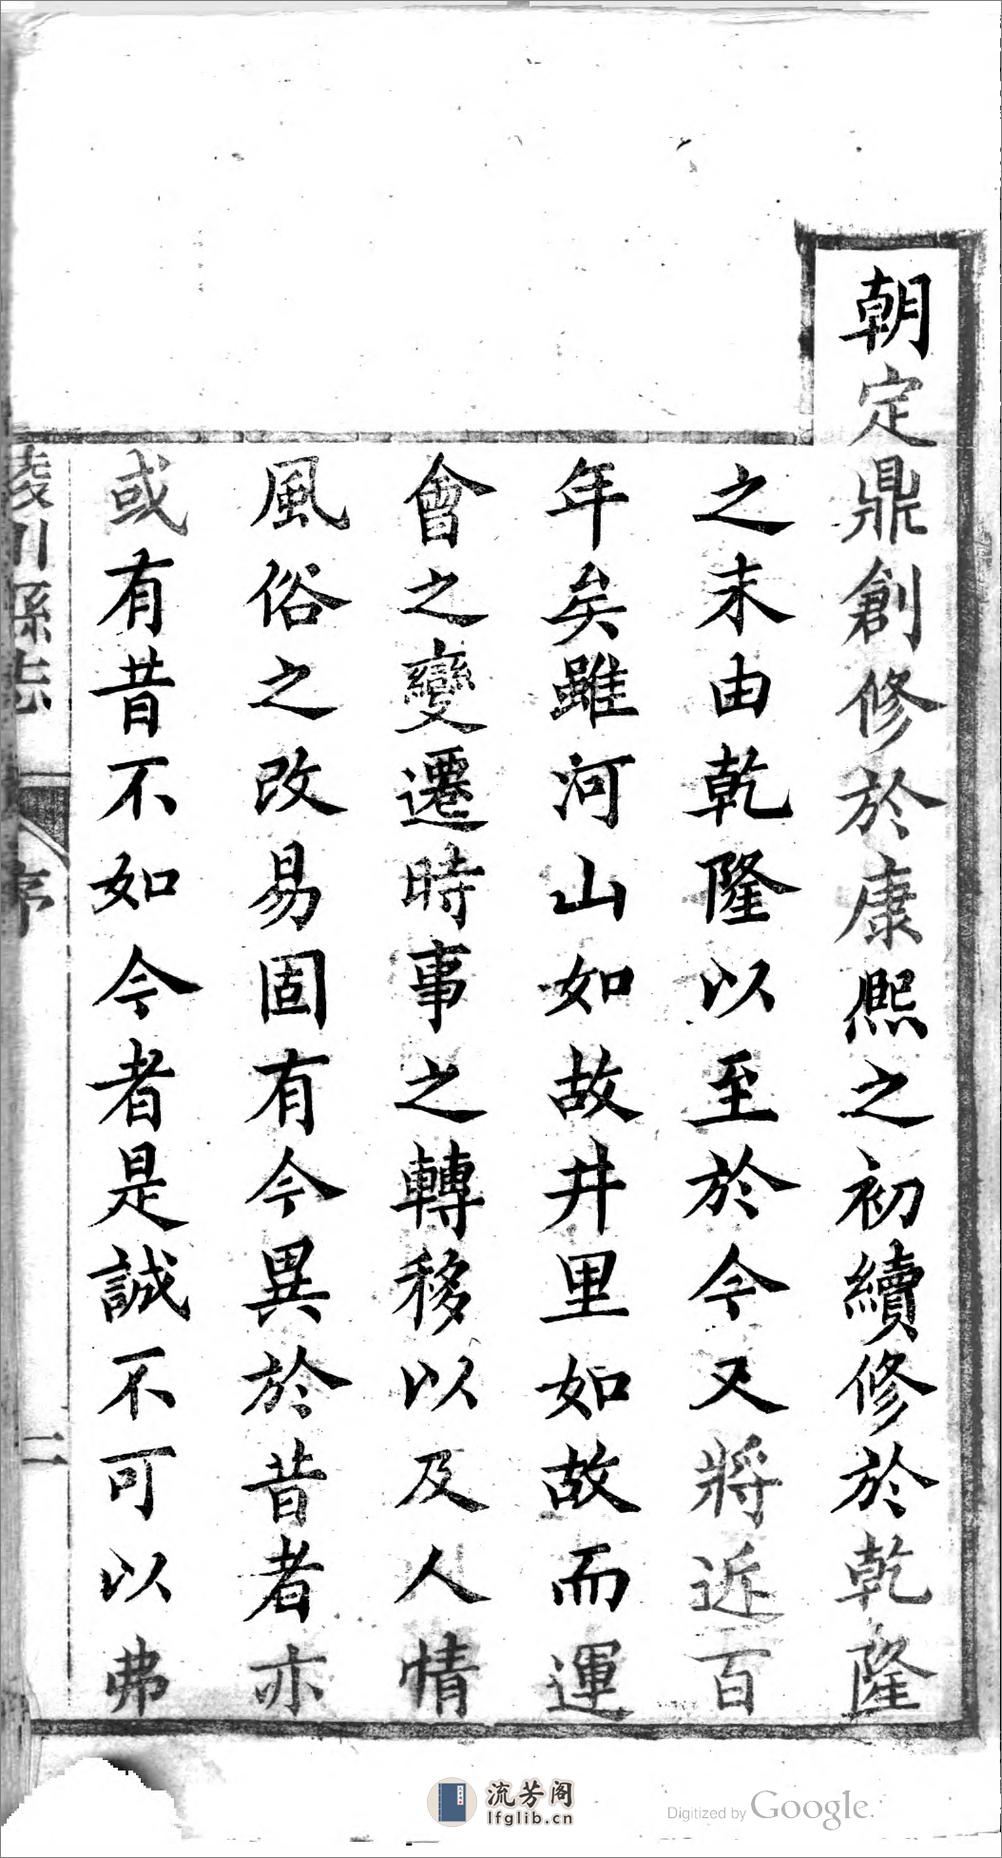 朝定鼎創修於康熙之初續修於乾隆
之末由乾隆以至於今又將近百
年矣雖河山如故井里如故而運
會之變遷時事之轉移以及人情
風俗之改易固有今異於昔者亦
或有昔不如今者是誠不可以弗
陵川縣志
序
二
流芳阁
lfglib.cn
Digitized by Google